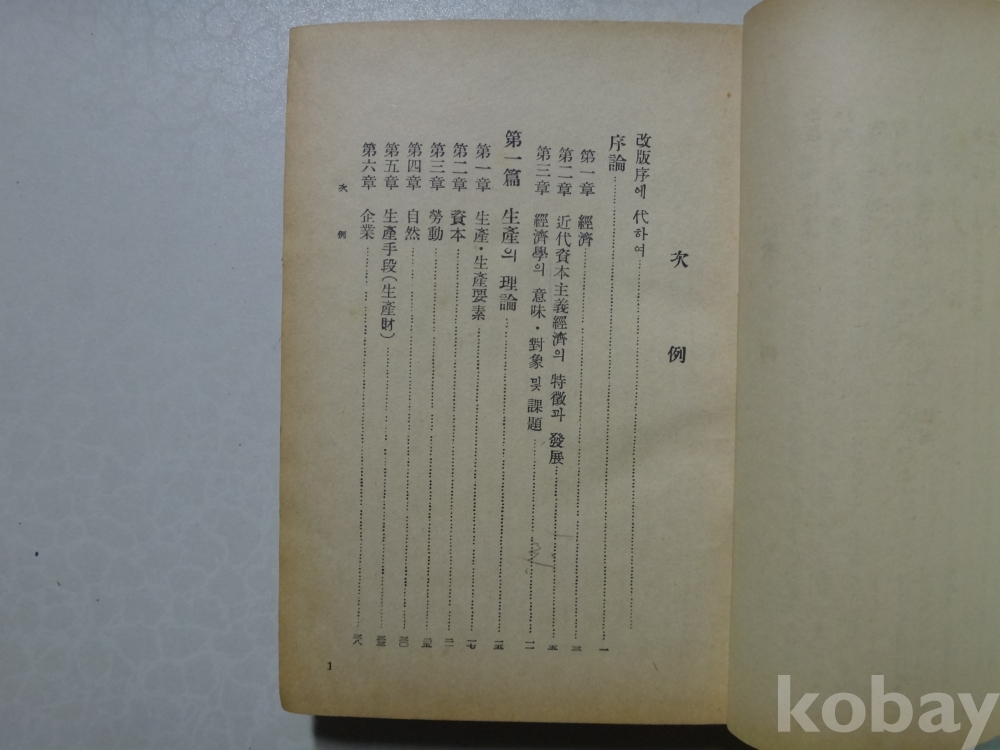 次 例
改版序에 代하여
序論 一
第一章 經濟 三
第二章 近代資本主義經濟의 特徵과 發展 五
第三章 經濟學의 意味・對象 및 課題 一一
第一篇 生產의 理論 一五
第一章 生產・生產要素 一七
第二章 資本 二一
第三章 勞動 二五
第四章 自然 三〇
第五章 生產手段(生產財)
第六章 企業 三八
次 例
1
kobay